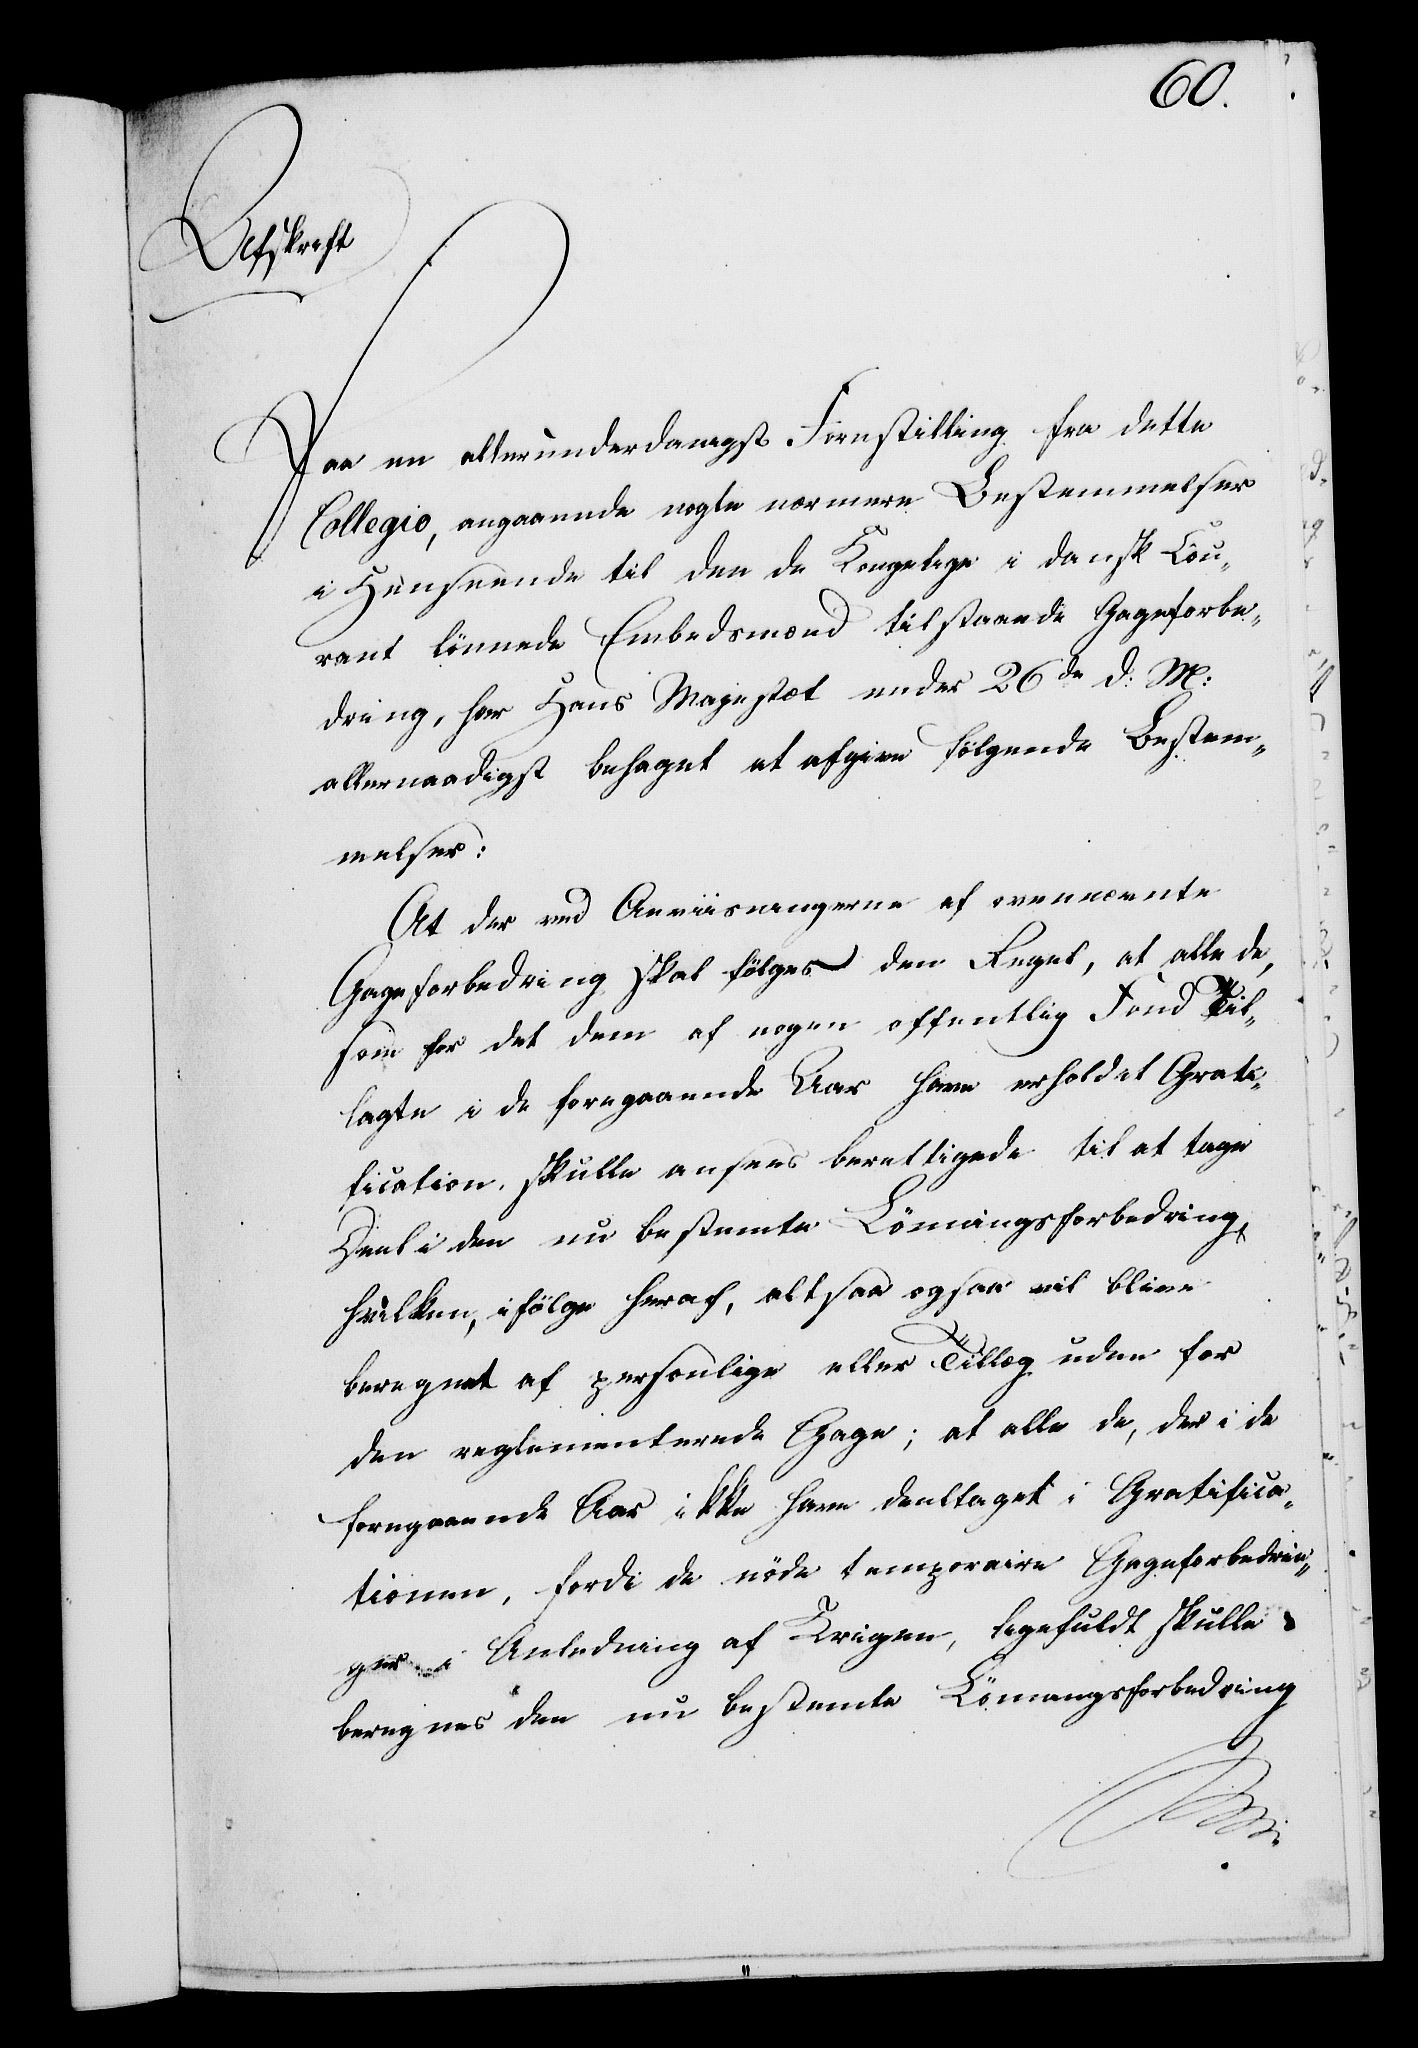 60.
Afskrift
Paa en allerunderdanigst Forestilling fra dette
Collegio, angaaende nogle nærmere Bestemmelser
i Henseende til den de Kongelige i dansk Cou„
rant lönnede Embedsmænd tilstaaede Gageforbe„
dring, har Hans Majestæt under 26de d: M:
allernaadigst behaget at afgive fölgende Bestem„
melser:
At der ved Anviisningerne af ovennævnte
Gageforbedring skal fölges den Regel, at alle de,
som for det dem af nogen offentlig Fond Til„
lagte i de foregaaende Aar have erholdet Grati„
fication, skulle ansees berettigede til at tage
Deel i den nu bestemte Lönningsforbedring,
hvilken, ifölge heraf, altsaa ogsaa vil blive
beregnet af personlige eller Tillæg uden for
den reglementerede Gage; at alle de, der i de
foregaaende Aar ikke have deeltaget i Gratifica„
tionen, fordi de nöde temporaire Gageforbedrin„
ger i Anledning af Krigen, ligefuldt skulle
beregnes den nu bestemte Lönningsforbedring